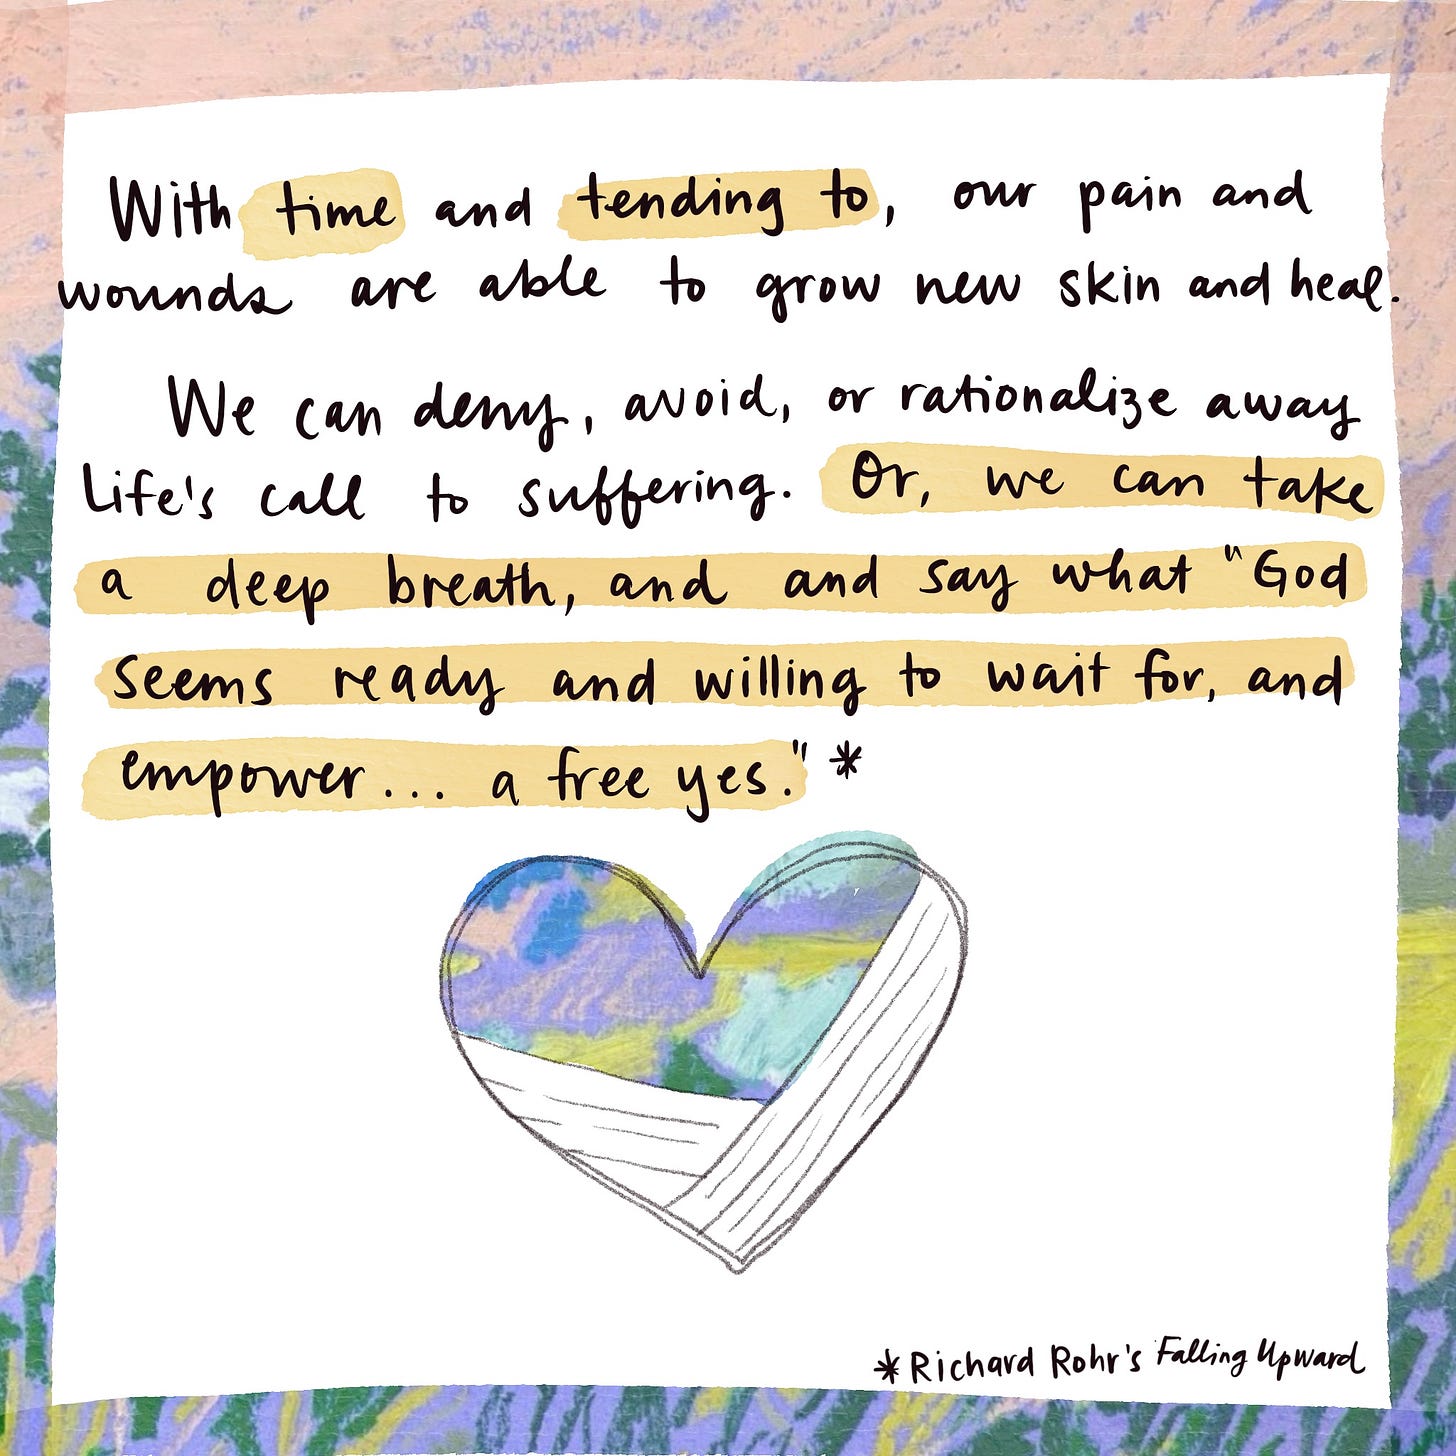 With time and tending to, our pain and
wounds are able to grow new skin and heal.
We can deny, avoid, or rationalize away
Life's call to suffering. Or, we can take
a deep breath, and and say what "God
seems ready and willing to wait for, and
empower... a free yes." *
*Richard Rohr's Falling Upward